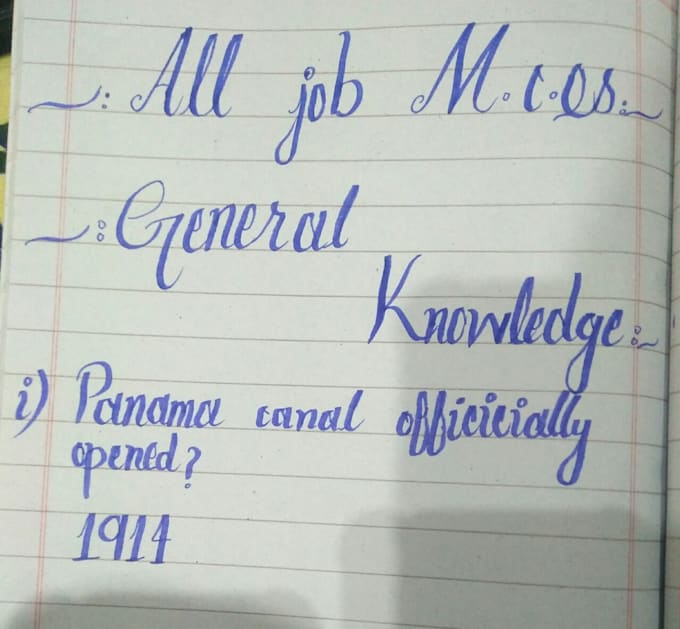 ~: All job M.C.Qs:~
~: General
Knowledge:~
i) Panama canal officicially
opened?
1914